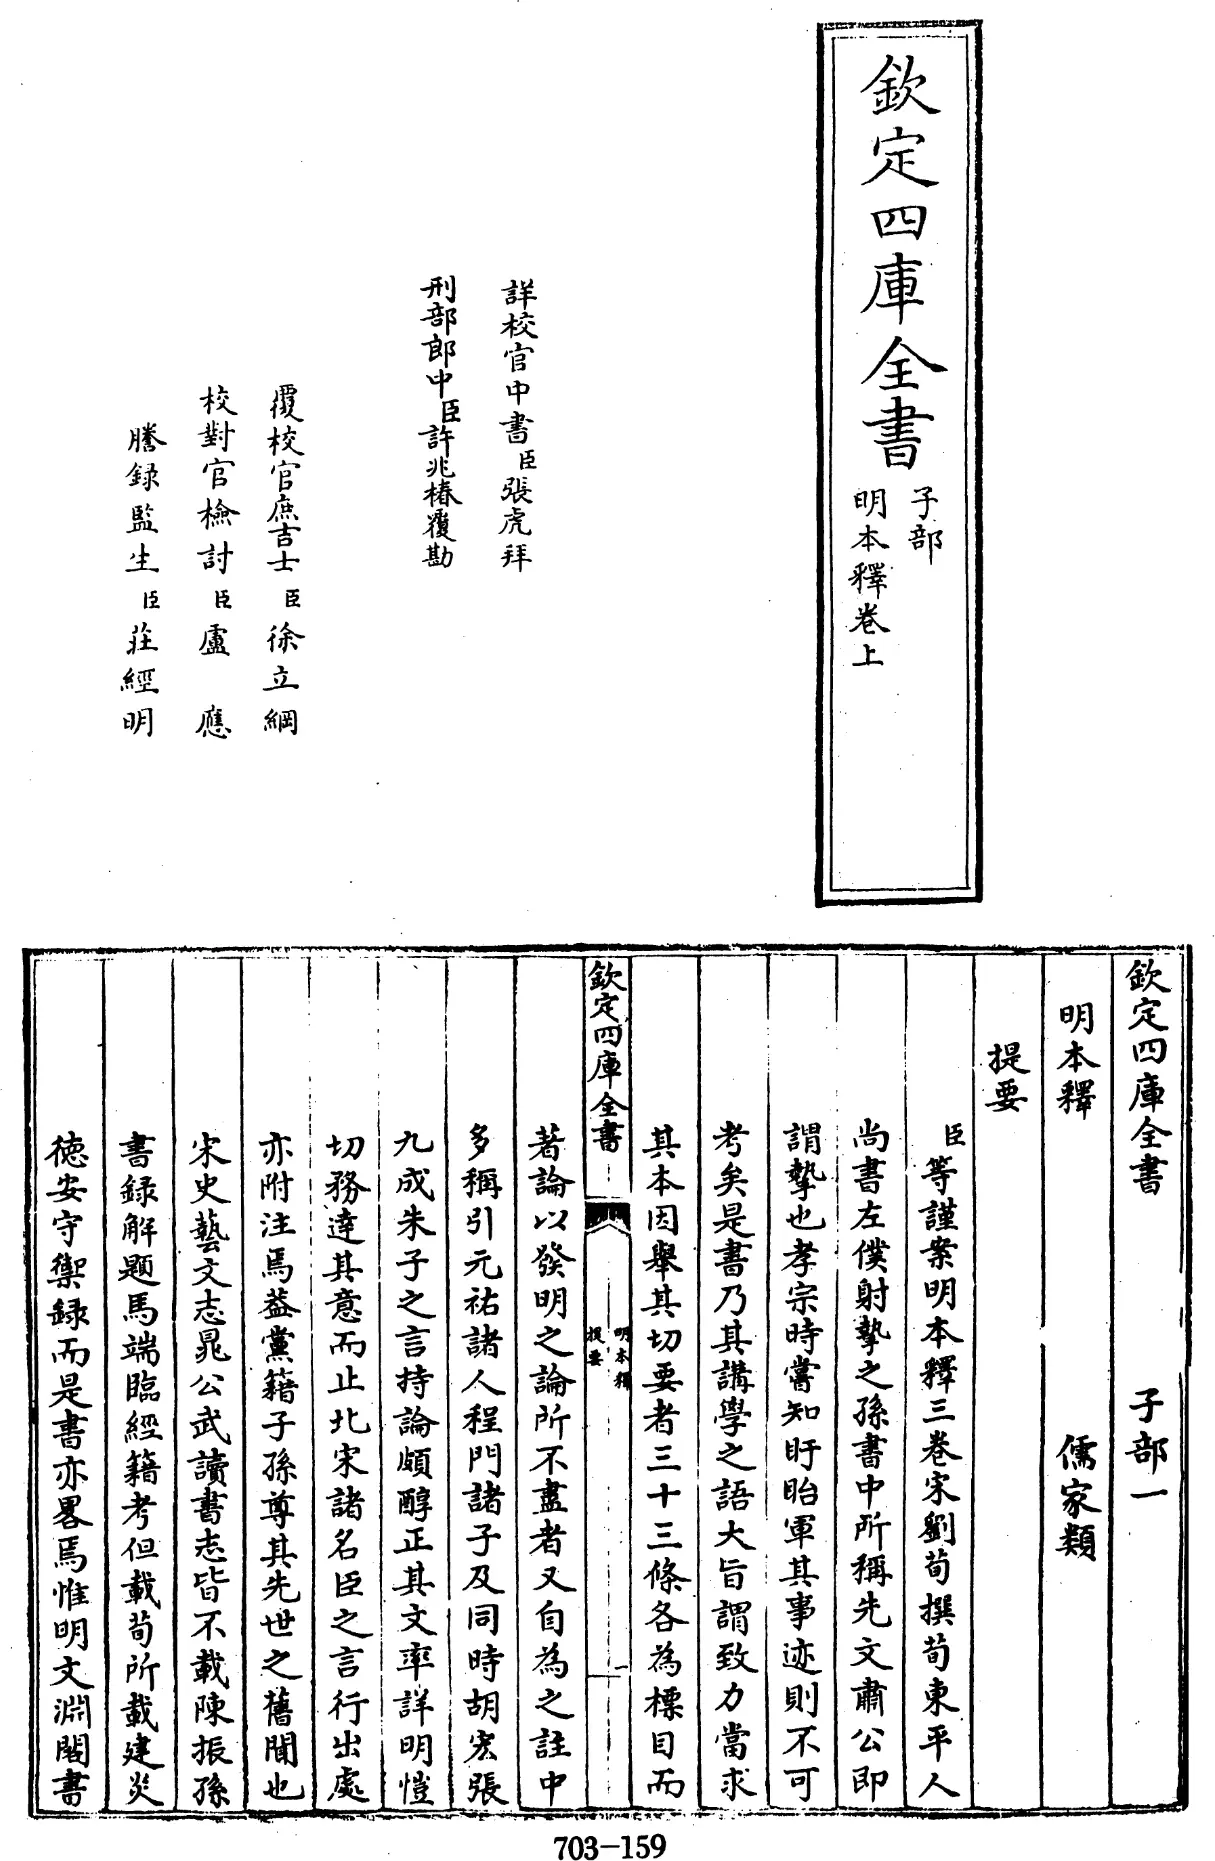 欽定四庫全書
子部
明本釋卷上
詳校官中書臣張虎拜
刑部郎中臣許兆椿覆勘
覆校官庶吉士臣徐立綱
校對官檢討臣盧應
謄録監生臣莊經明
欽定四庫全書 子部一
明本釋 儒家類
提要
臣等謹案明本釋三卷宋劉荀撰荀東平人
尚書左僕射摯之孫書中所稱先文肅公即
謂摯也孝宗時嘗知盱眙軍其事迹則不可
考矣是書乃其講學之語大旨謂致力當求
其本因舉其切要者三十三條各為標目而
欽定四庫全書
明本釋
提要
一
著論以發明之論所不盡者又自為之註中
多稱引元祐諸人程門諸子及同時胡宏張
九成朱子之言持論頗醇正其文率詳明愷
切務達其意而止北宋諸名臣之言行出處
亦附注焉葢黨籍子孫尊其先世之舊聞也
宋史藝文志晁公武讀書志皆不載陳振孫
書録解題馬端臨經籍考但載荀所載建炎
徳安守禦録而是書亦畧焉惟明文淵閣書
703-159